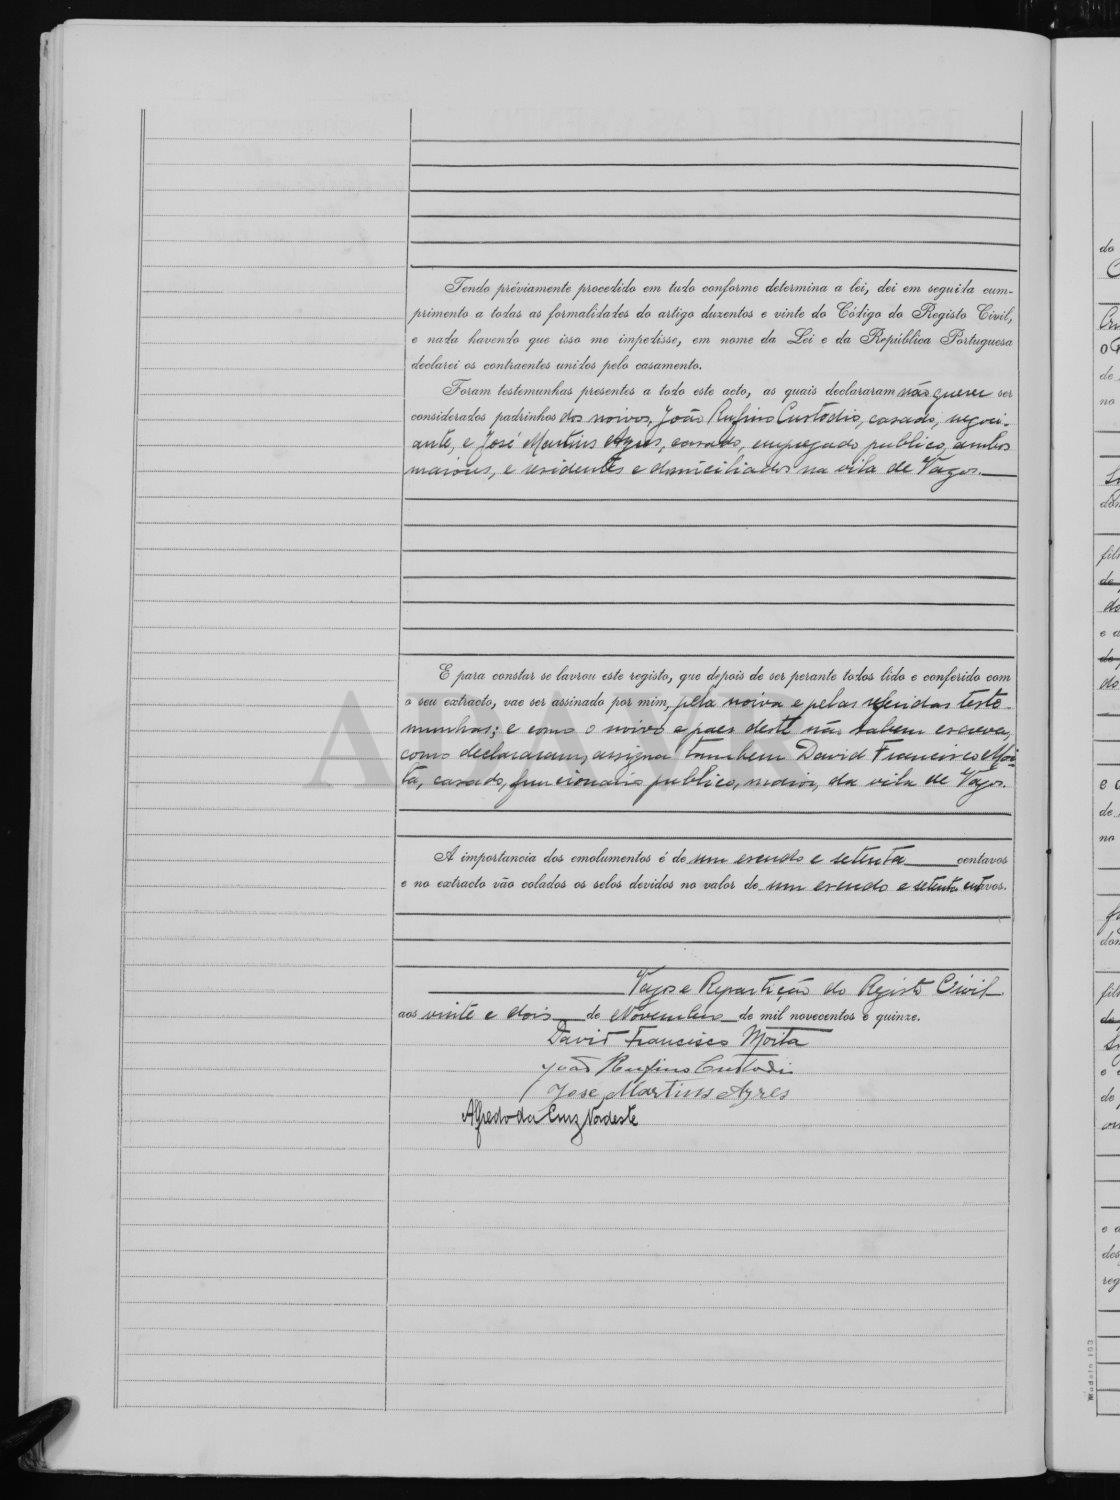 Tendo préviamente procedido em tudo conforme determina a lei, dei em seguida cum-
primento a todas as formalidades do artigo duzentos e vinte do Código do Registo Civil,
e nada havendo que isso me impedisse, em nome da Lei e da República Portuguesa
declarei os contraentes unidos pelo casamento.
Foram testemunhas presentes a todo este acto, as quais declararam não querer ser
considerados padrinhos dos noivos, João Rufino Custodio, casado, negoci-
ante, e José Martins Ayres, casado, empregado publico, ambos
maiores, e residentes e domiciliados na vila de Vagos.
E para constar se lavrou este registo, que depois de ser perante todos lido e conferido com
o seu extracto, vae ser assinado por mim, pela noiva e pelas referidas teste-
munhas; e como o noivo e paes deste não sabem escrever,
como declararam, assigna tambem David Francisco Moi-
ta, casado, funcionario publico, maior, da vila de Vagos.
A importancia dos emolumentos é de um escudo e setenta centavos
e no extracto vão colados os selos devidos no valor de um escudo e setenta centavos.
Vagos e Repartição do Registo Civil
aos vinte e dois de Novembro de mil novecentos e quinze.
David Francisco Moita
João Rufino Custodio
Jose Martins Ayres
Alfredo da Cruz Nordeste
do
de
no
dom
filh
do
e a
do
e
de
no
dom
filh
e
de
e a
des
reg
Modelo 193